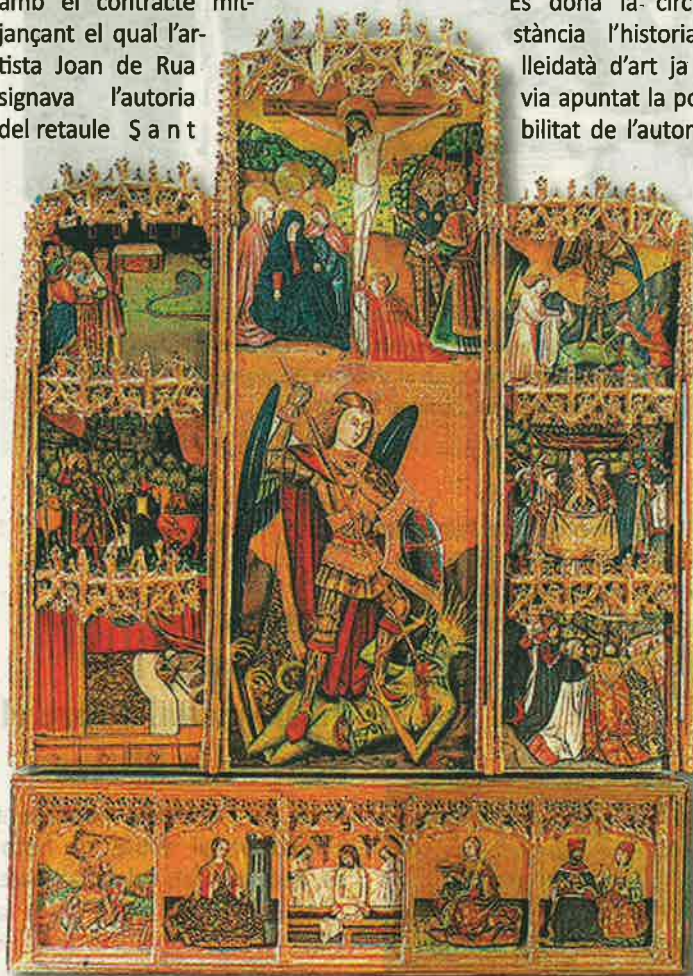 amb el contracte mit-
jançant el qual l'ar-
tista Joan de Rua
signava l'autoria
del retaule Sant
Es dona la circ
stància l'historia
lleidatà d'art ja
via apuntat la po
bilitat de l'autor